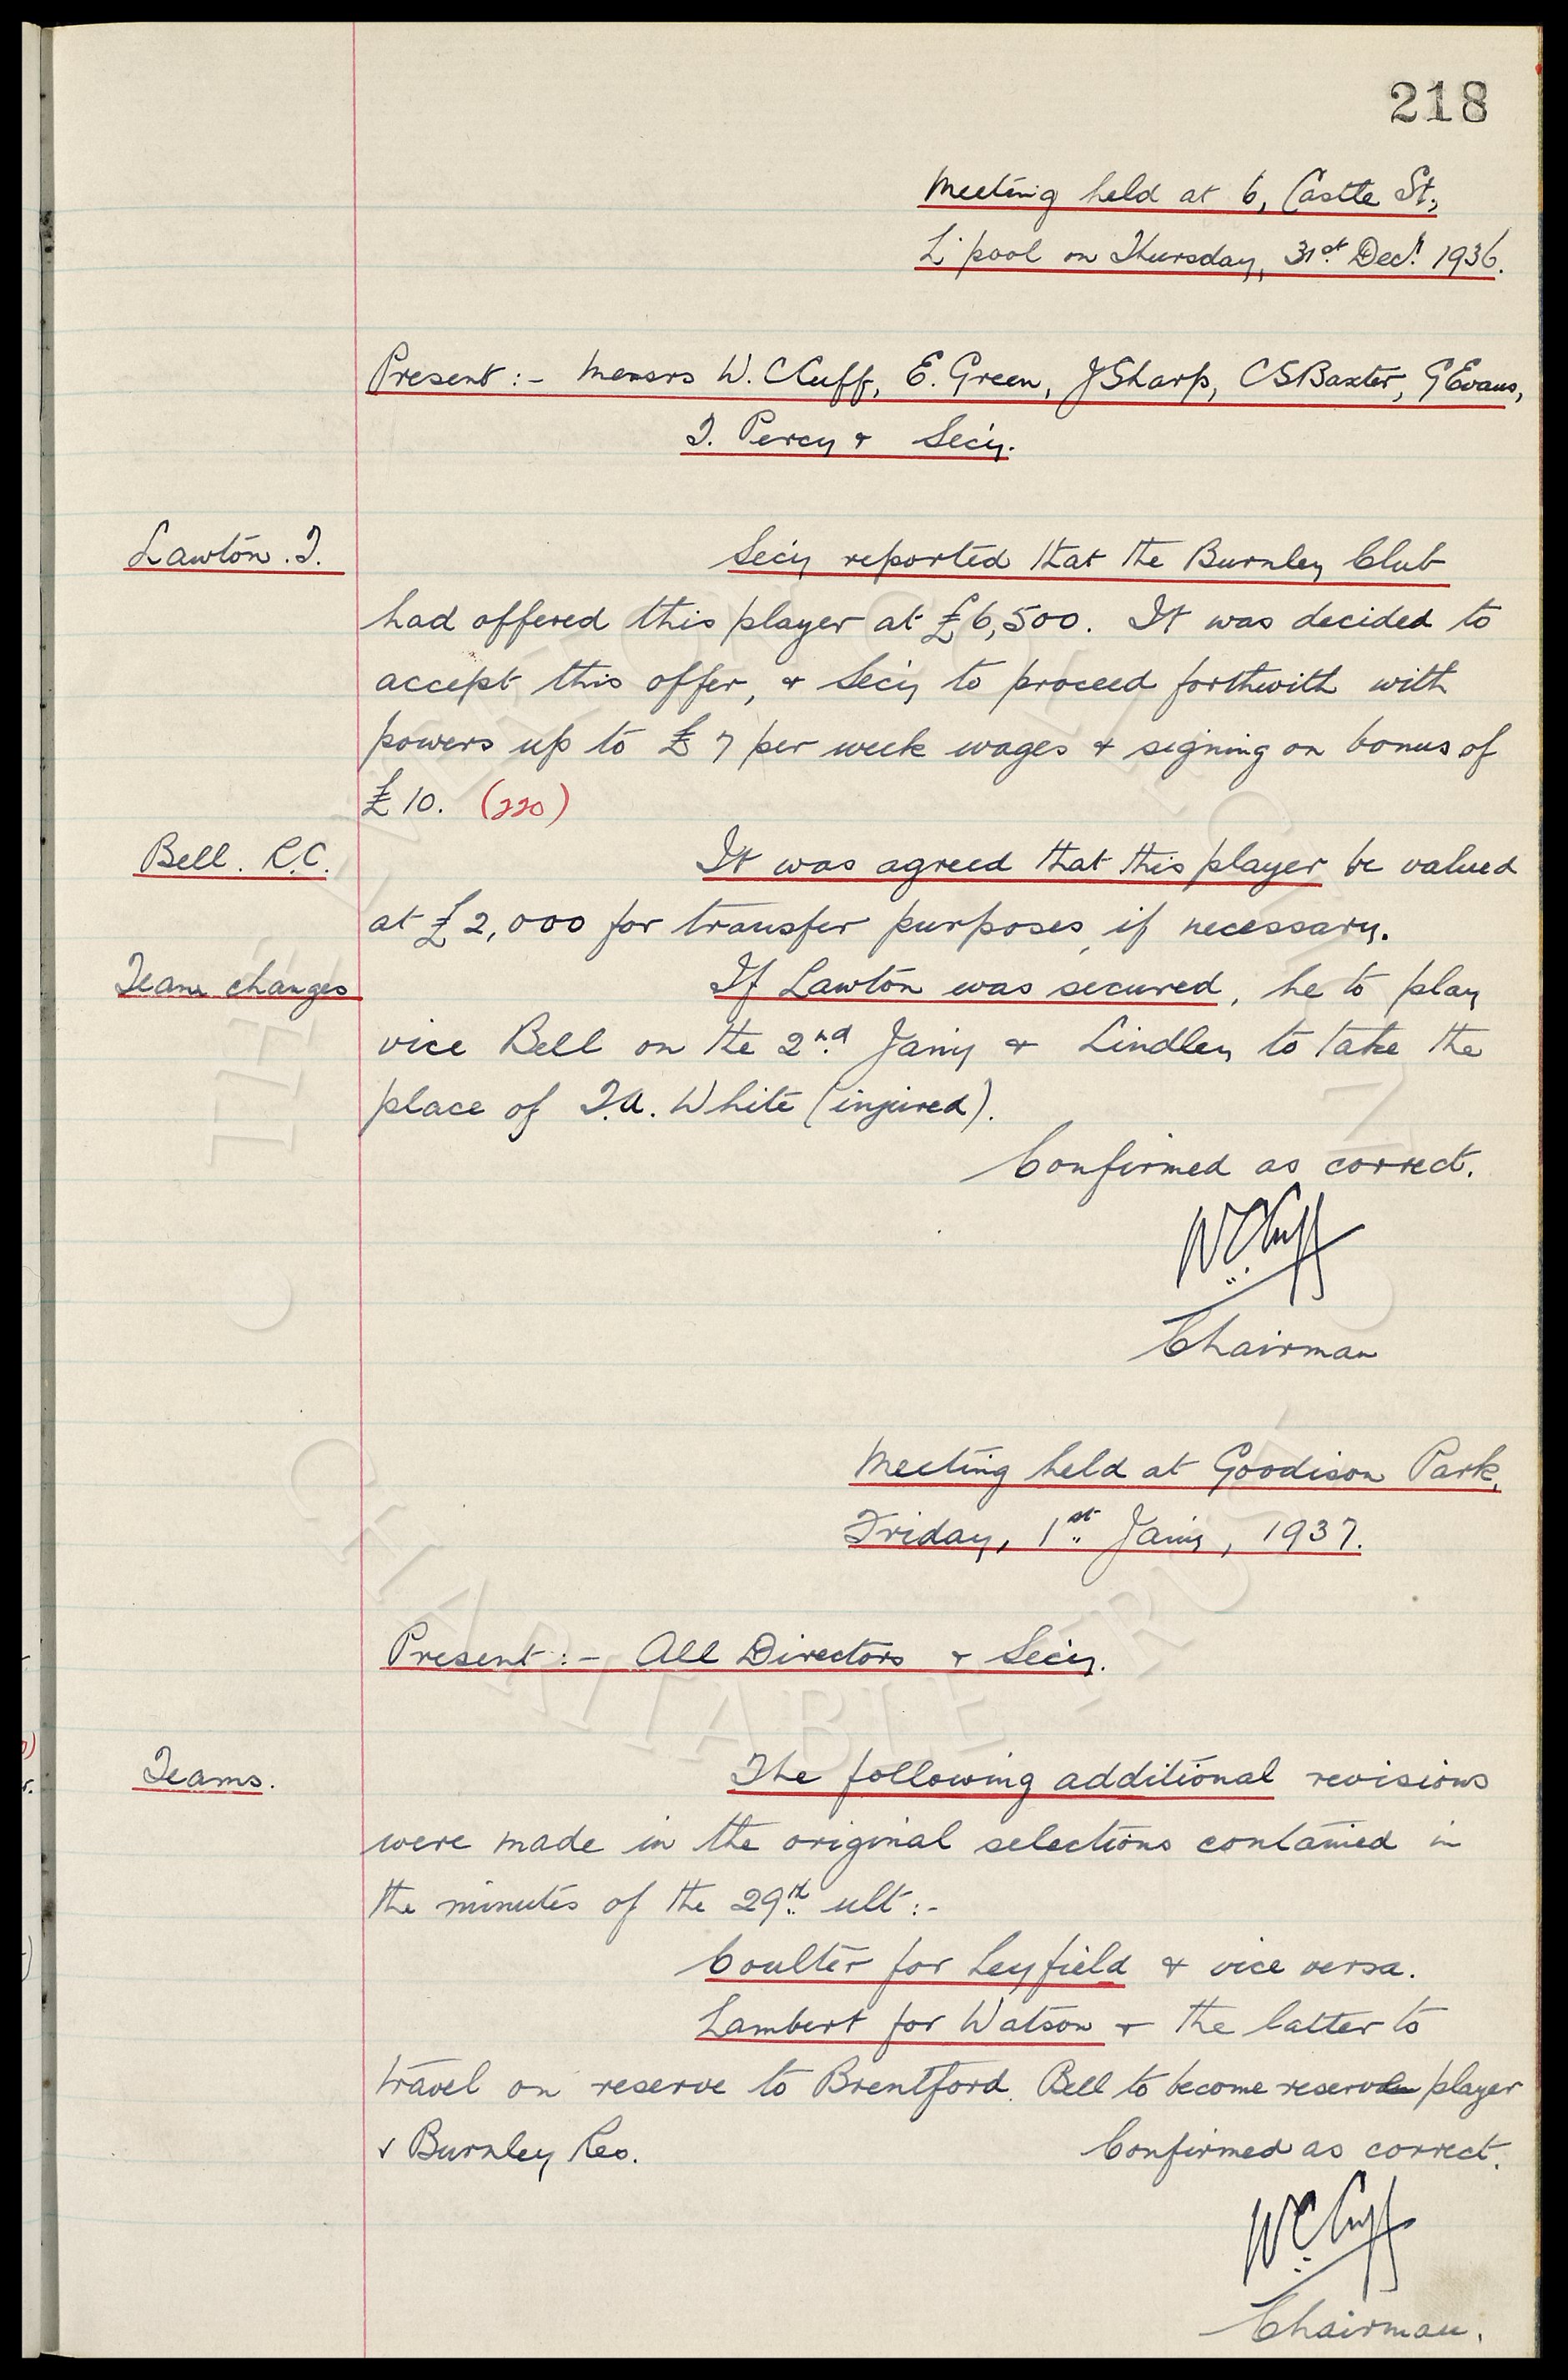 218
Meeting held at 6, Castle St.,
L'pool on Thursday, 31st. Decr. 1936.
Present :- Messrs W. C Cuff, E. Green, J Sharp, C S Baxter, G Evans,
T. Percy & Secy.
Lawton. T.
Secy reported that the Burnley Club
had offered this player at £6,500. It was decided to
accept this offer, & Secy to proceed forthwith with
powers up to £7 per week wages & signing on bonus of
£10. (220)
Bell. R.C.
It was agreed that this player be valued
at £2,000 for transfer purposes, if necessary.
Team changes
If Lawton was secured, he to play
vice Bell on the 2nd. Jany & Lindley to take the
place of T.A. White (injured).
Confirmed as correct.
W C Cuff
Chairman
Meeting held at Goodison Park,
Friday, 1st. Jany, 1937.
Present :- All Directors & Secy.
Teams.
The following additional revisions
were made in the original selections contained in
the minutes of the 29th. ult :-
Coulter for Leyfield & vice versa.
Lambert for Watson & the latter to
travel on reserve to Brentford. Bell to become reserve player
v Burnley Res.
Confirmed as correct.
W C Cuff
Chairman.